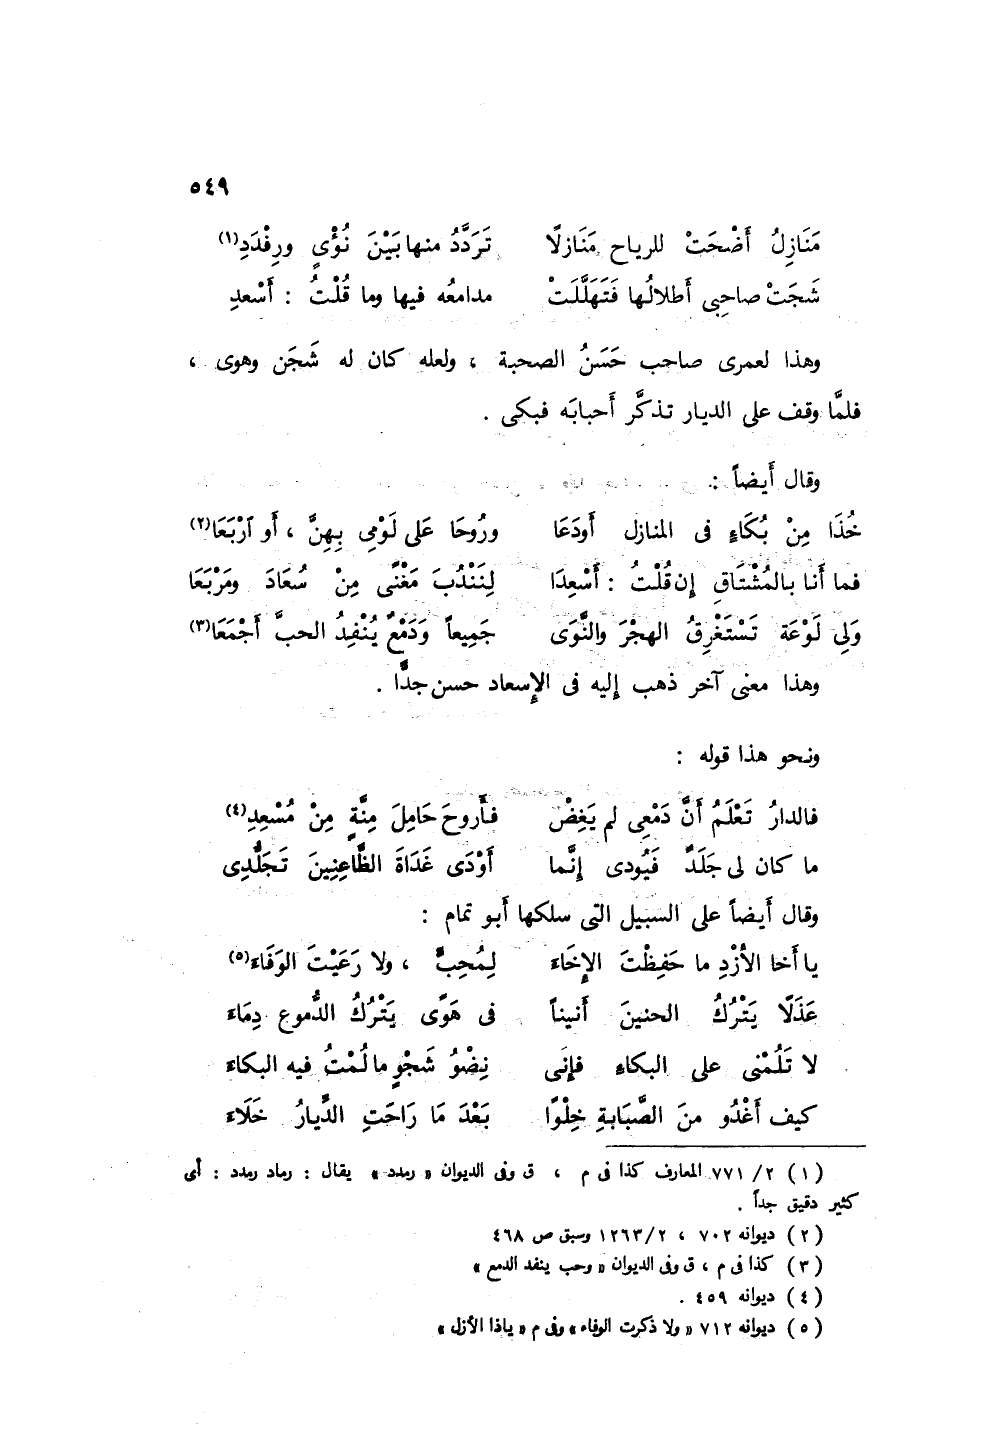 ٥٤٩
مَنَازِلُ أَضْحَتْ للرياح مَنَازلًا تَرَدَّدُ منها بَيْنَ نُؤْيٍ ورِفْدَدِ(١)
شَجَتْ صاحِبِى أَطلالُها فَتَهَلَّلَتْ مدامعُه فيها وما قُلْتُ : أَسْعدِ
وهذا لعمرى صاحب حَسَنُ الصحبة ، ولعله كان له شَجَن وهوى ،
فلمَّا وقف على الديار تذكَّر أَحبابَه فبكى .
وقال أَيضاً :
خُذَا مِنْ بُكَاءٍ فى المنازل أَودَعَا ورُوحَا عَلى لَوْمِى بِهِنَّ ، أَو ٱرْبَعَا(٢)
فما أَنا بالمُشْتَاقِ إِن قُلْتُ : أَسْعِدَا لِنَنْدُبَ مَغْنًى مِنْ سُعَادَ ومَرْبَعَا
وَلِى لَوْعَة تَسْتَغْرِقُ الهجْرَ والنَّوَى جَمِيعاً وَدَمْعٌ يُنْفِدُ الحبَّ أَجْمَعَا(٣)
وهذا معنى آخر ذهب إِليه فى الإِسعاد حسن جدًّا .
ونحو هذا قوله :
فالدارُ تَعْلَمُ أَنَّ دَمْعِى لم يَغِضْ فأَروحَ حَامِلَ مِنَّةٍ مِنْ مُسْعِدِ(٤)
ما كان لى جَلَدٌ فَيُودى إِنَّما أَوْدَى غَدَاةَ الظَّاعِنِينَ تَجَلُّدِى
وقال أَيضاً على السبيل التى سلكها أَبو تمام :
يا أَخا الأَزْدِ ما حَفِظْتَ الإِخَاءَ لِمُحِبٍّ ، ولا رَعَيْتَ الوَفَاءَ(٥)
عَذَلًا يَتْرُكُ الحنينَ أَنيناً فى هَوًى يَتْرُكُ الدُّموع دِمَاءَ
لا تَلُمْنى على البكاءِ فإِنى نِضْوُ شَجْوٍ ما لُمْتُ فيه البكاءَ
كيف أَغْدُو منَ الصَّبَابةِ خِلْوًا بَعْدَ مَا رَاحَتِ الدِّيارُ خَلَاءَ
(١) ٧٧١/٢ المعارف كذا فى م ، ق وفى الديوان « رمدد » يقال : رماد رمدد : أى
كثير دقيق جداً .
(٢) ديوانه ٧٠٢ ، ١٢٦٣/٢ وسبق ص ٤٦٨
(٣) كذا فى م ، ق وفى الديوان « وحب ينفد الدمع »
(٤) ديوانه ٤٥٩ .
(٥) ديوانه ٧١٢ « ولا ذكرت الوفاء » وفى م « ياذا الأزل »